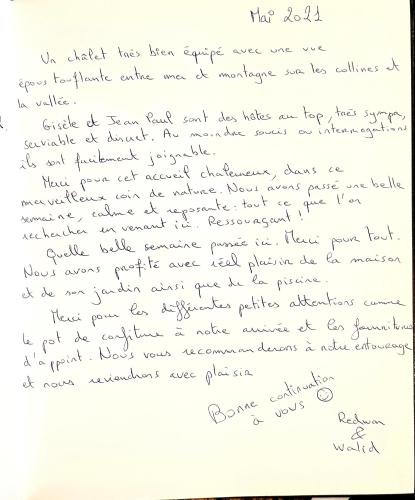 Mai 2021
Un châlet très bien équipé avec une vue
époustouflante entre mer et montagne sur les collines et
la vallée.
Gisèle et Jean Paul sont des hôtes au top, très sympa,
serviable et discret. Au moindre soucis ou interrogations
ils sont facilement joignable.
Merci pour cet accueil chaleureux, dans ce
merveilleux coin de nature. Nous avons passé une belle
semaine, calme et reposante : tout ce que l'on
rechercher en venant ici. Ressourçant !
Quelle belle semaine passée ici. Merci pour tout.
Nous avons profité avec réel plaisir de la maison
et de son jardin ainsi que de la piscine.
Merci pour les différentes petites attentions comme
le pot de confiture à notre arrivée et les fournitures
d'appoint. Nous vous recommanderons à notre entourage
et nous reviendrons avec plaisir
Bonne continuation
à vous ☺
Redwan
&
Walid